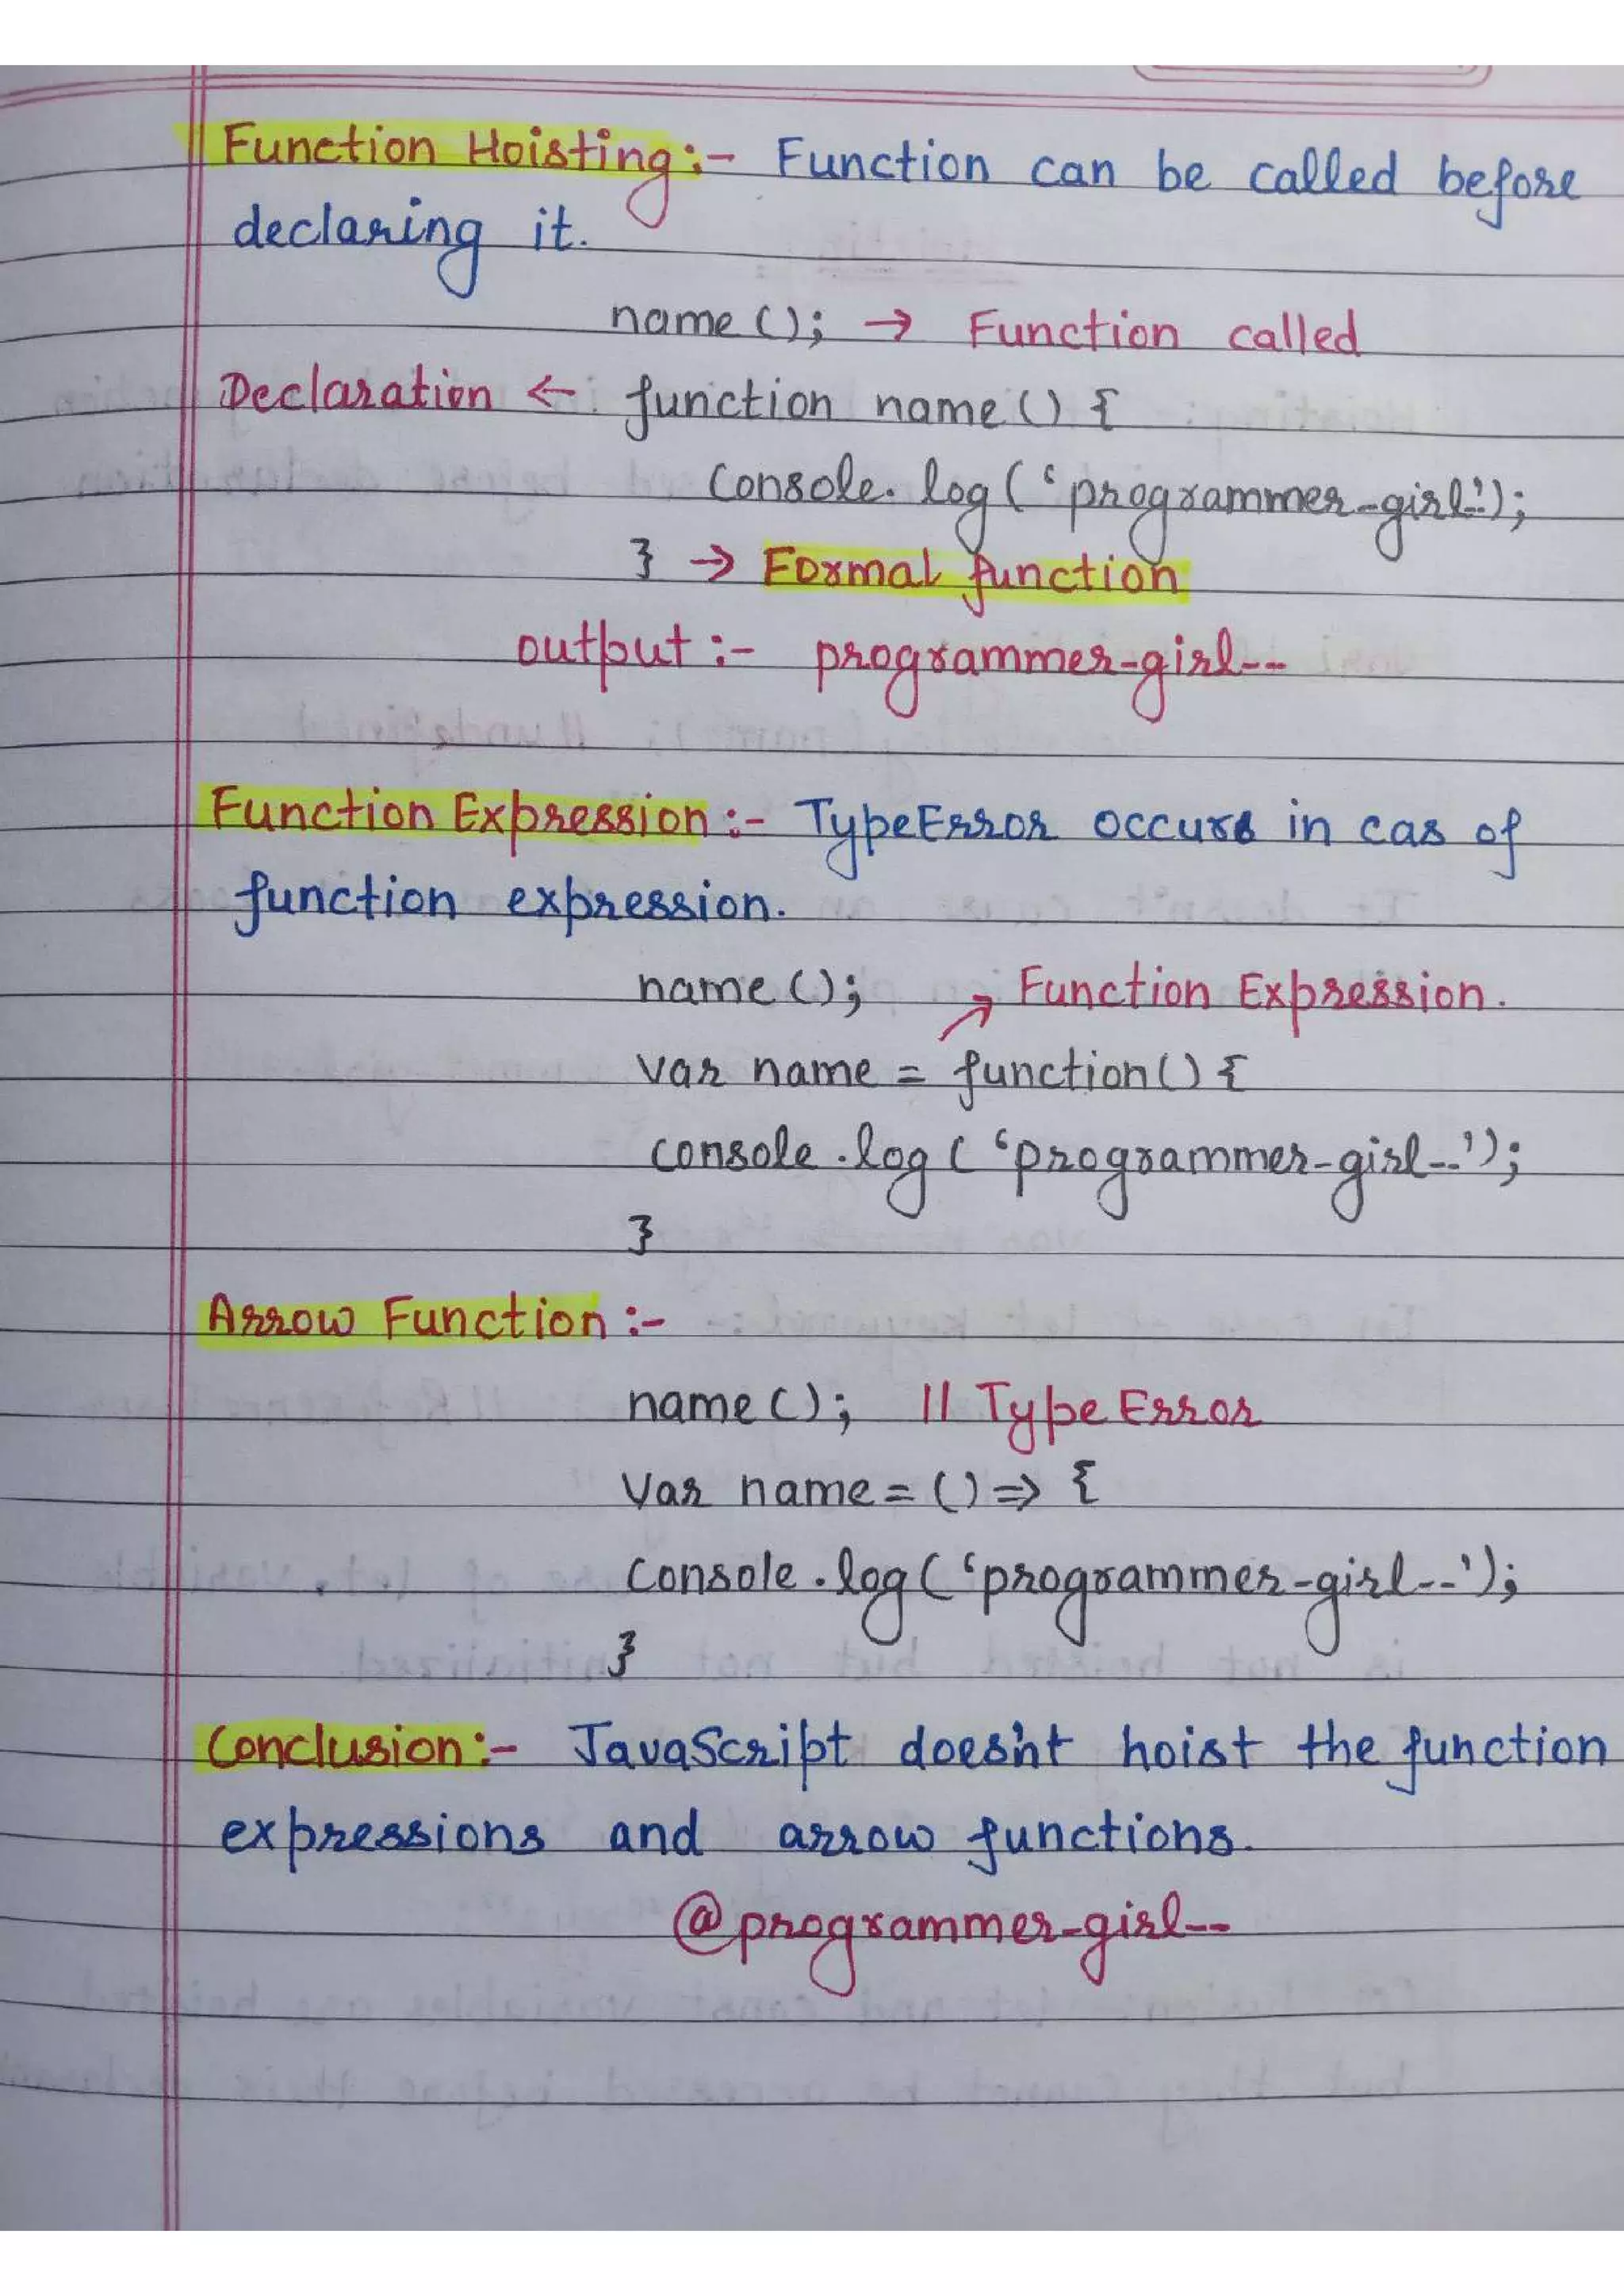 Function Hoisting:- Function can be called before
declaring it.
name(); → Function called
Declaration ← function name() {
Console.log('programmer-girl--');
} → Formal function
output :- programmer-girl--
Function Expression :- TypeError occurs in cas of
function expression.
name(); → Function Expression.
var name = function() {
console.log('programmer-girl--');
}
Arrow Function :-
name(); // TypeError
Var name = () => {
Console.log('programmer-girl--');
}
Conclusion :- JavaScript doesn't hoist the function
expressions and arrow functions.
@programmer-girl--